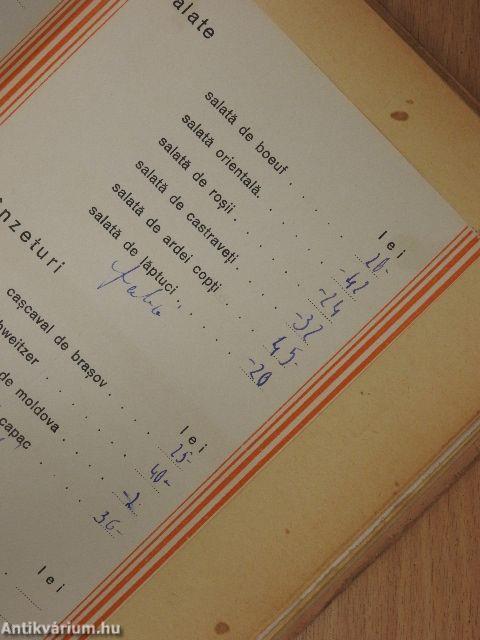 alate
lei
salată de boeuf . . . . 20-
salată orientală. . . . . -42
salată de roșii . . . . . -24
salată de castraveți . . . . -32
salată de ardei copți . . . . 45-
salată de lăptuci . . . . -20
ânzeturi
lei
cașcaval de brașov . . . . 25-
hweitzer . . . . . 40-
de moldova . . . .
capac . . . . 36-
lei
Antikvárium.hu